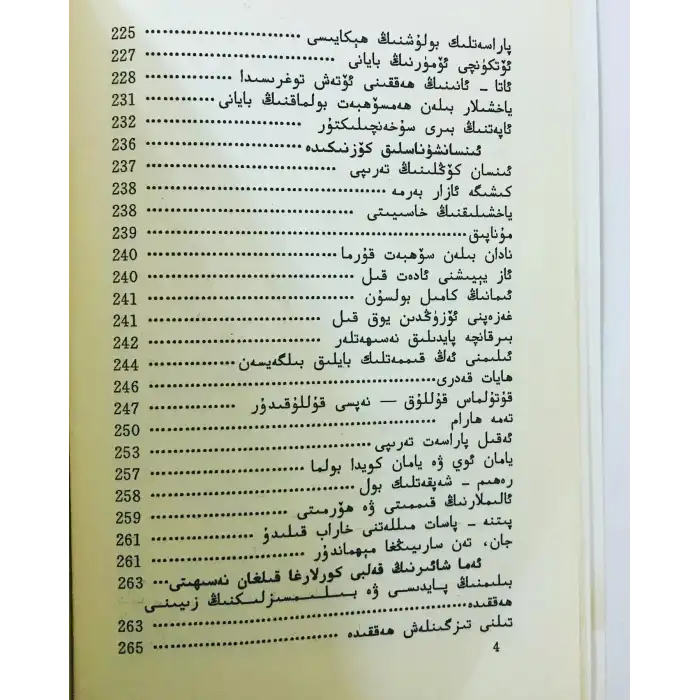 پاراسەتلىك بولۇشنىڭ ھېكايىسى ............ 225
ئۆتكۈنچى ئۆمۈرنىڭ بايانى ............ 227
ئاتا - ئانىنىڭ ھەققىنى ئۆتەش توغرىسىدا ............ 228
ياخشىلار بىلەن ھەمسۆھبەت بولماقنىڭ بايانى ............ 231
ئاپەتنىڭ بىرى سۇخەنچىلىكتۇر ............ 232
ئىنسانشۇناسلىق كۆزنىكىدە ............ 236
ئىنسان كۆڭلىنىڭ تەرىپى ............ 237
كىشىگە ئازار بەرمە ............ 238
ياخشىلىقنىڭ خاسىيىتى ............ 238
مۇناپىق ............ 239
نادان بىلەن سۆھبەت قۇرما ............ 240
ئاز يېيىشنى ئادەت قىل ............ 240
ئىمانىڭ كامىل بولسۇن ............ 241
غەزەپنى ئۆزۈڭدىن يوق قىل ............ 241
بىرقانچە پايدىلىق نەسىھەتلەر ............ 242
ئىلىمنى ئەڭ قىممەتلىك بايلىق بىلگەيسەن ............ 244
ھايات قەدرى ............ 246
قۇتۇلماس قۇللۇق — نەپسى قۇللۇقىدۇر ............ 247
تەمە ھارام ............ 250
ئەقىل پاراسەت تەرىپى ............ 253
يامان ئوي ۋە يامان كويدا بولما ............ 257
رەھىم - شەپقەتلىك بول ............ 258
ئالىملارنىڭ قىممىتى ۋە ھۆرمىتى ............ 259
پىتنە - پاسات مىللەتنى خاراب قىلىدۇ ............ 261
جان، تەن سارىيىڭغا مېھماندۇر ............ 261
ئەما شائىرنىڭ قەلبى كورلارغا قىلغان نەسىھىتى ... 263
بىلىمنىڭ پايدىسى ۋە بىلىمسىزلىكنىڭ زىيىنى
ھەققىدە ............ 263
تىلنى تىزگىنلەش ھەققىدە ............ 265
4